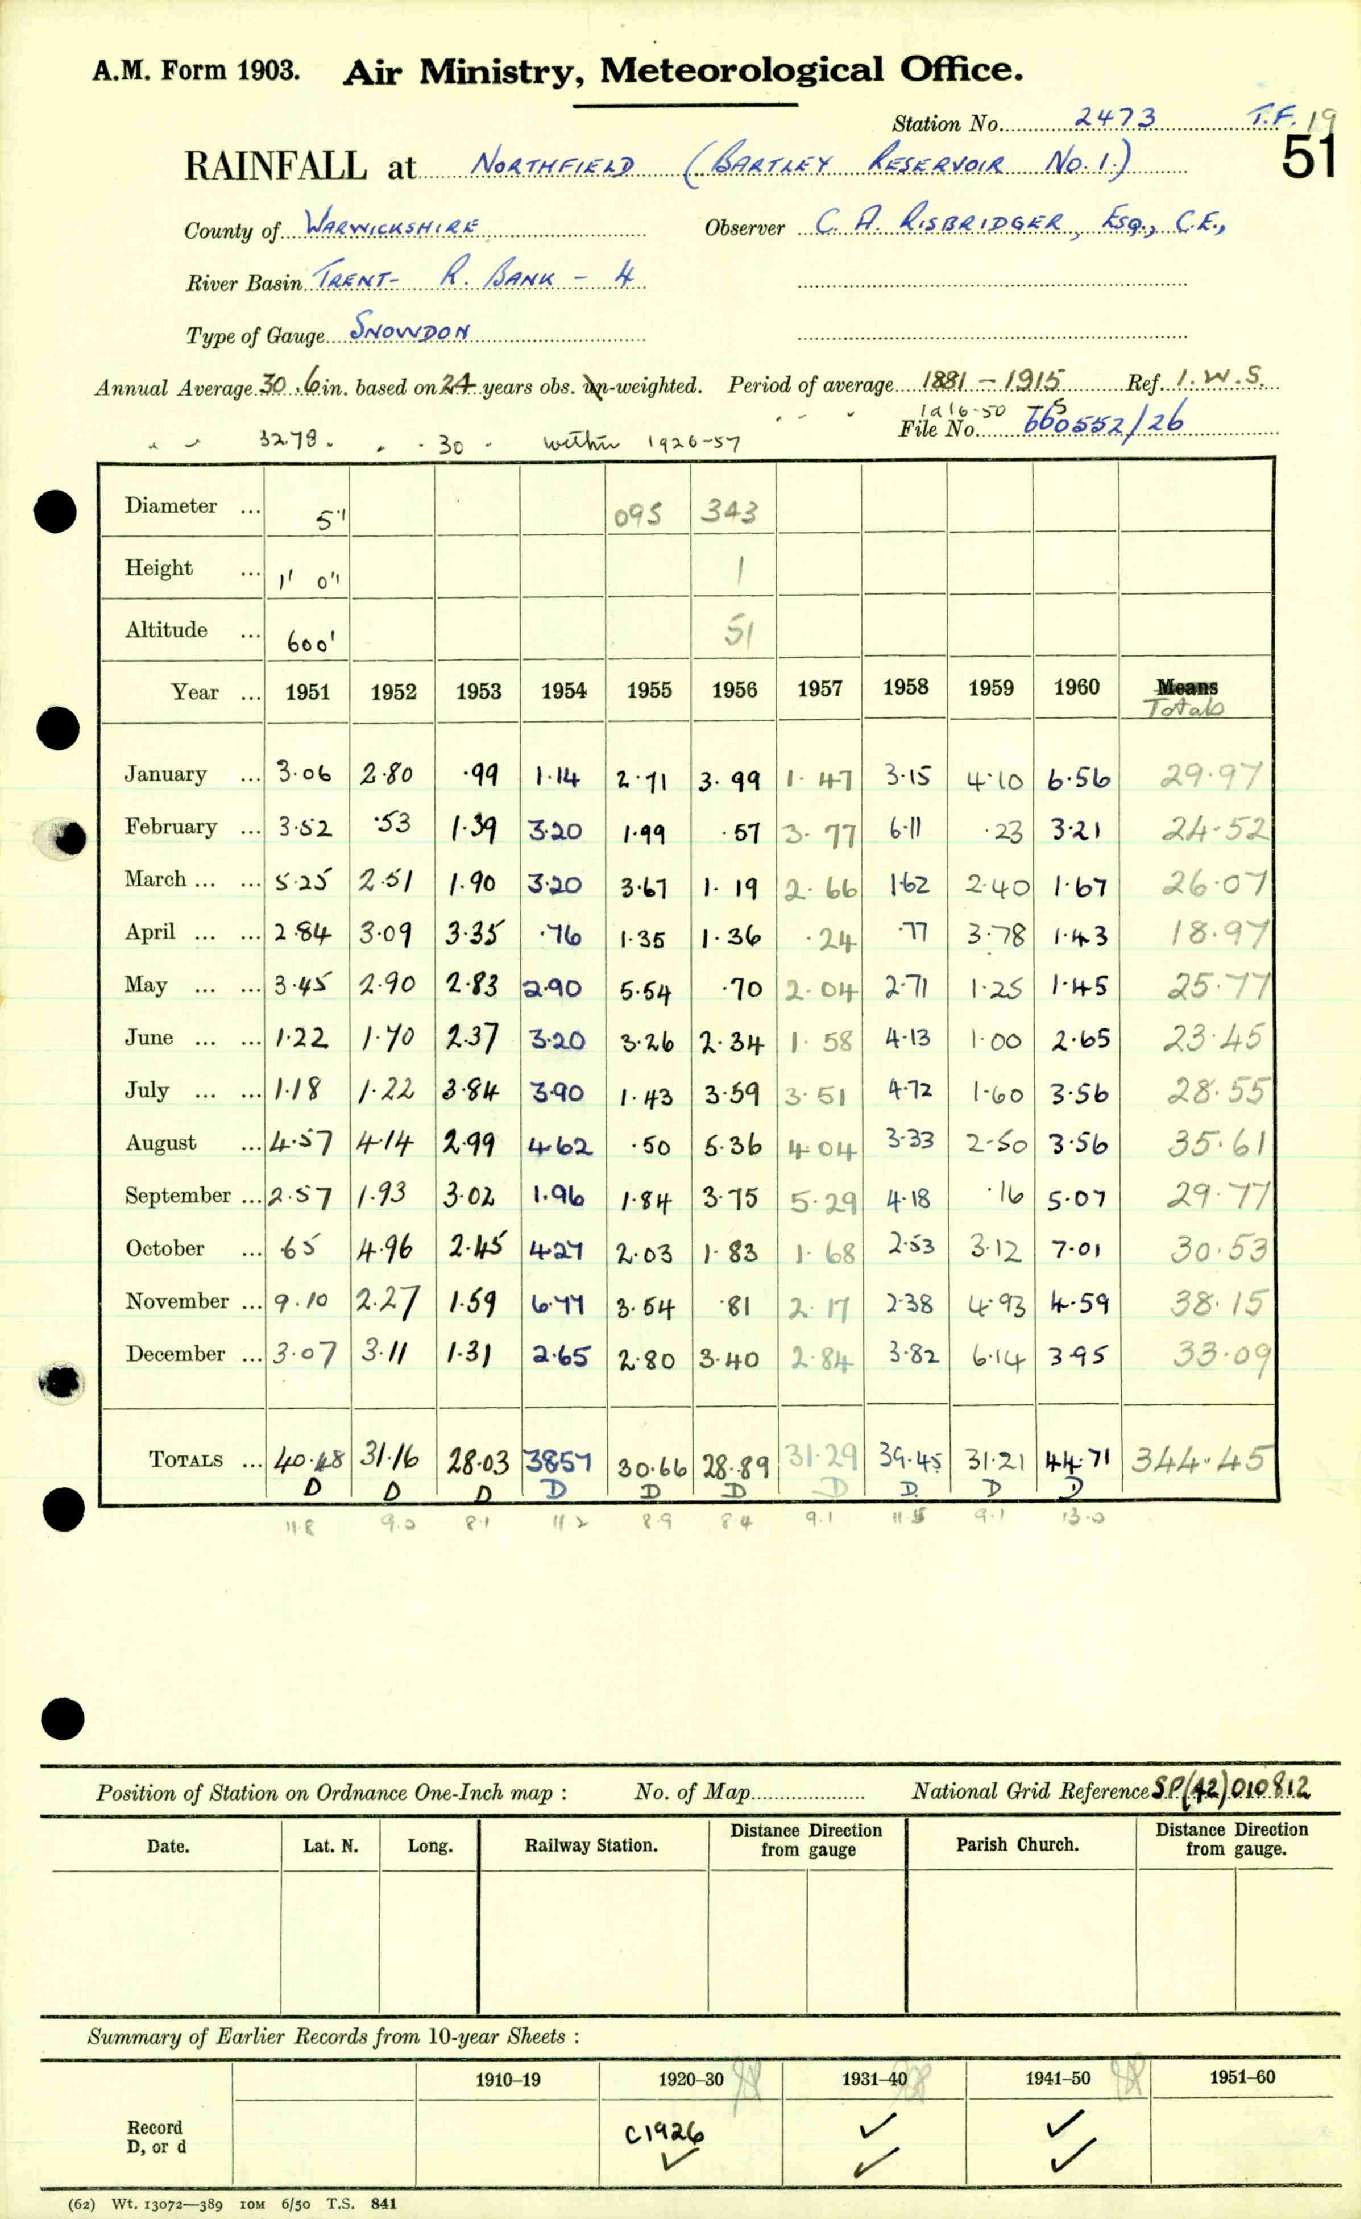 A.M. Form 1903. Air Ministry, Meteorological Office.
Station No. 2473 T.F. 19
RAINFALL at NORTHFIELD (BARTLEY RESERVOIR No. 1.) 51
County of WARWICKSHIRE Observer C. A. RISBRIDGER, ESQ., C.E.,
River Basin TRENT- R. BANK - 4
Type of Gauge SNOWDON
Annual Average 30.6 in. based on 24 years obs. un-weighted. Period of average 1881-1915 Ref. I.W.S.
1916-50 TS
File No. 660552/26
" " 32.78 " " 30 " within 1926-57
Diameter ... 5" 095 343
Height ... 1' 0" 1
Altitude ... 600' 51
Year ... 1951 1952 1953 1954 1955 1956 1957 1958 1959 1960 Means
Totals
January ... 3.06 2.80 .99 1.14 2.71 3.99 1.47 3.15 4.10 6.56 29.97
February ... 3.52 .53 1.39 3.20 1.99 .57 3.77 6.11 .23 3.21 24.52
March ... ... 5.25 2.51 1.90 3.20 3.67 1.19 2.66 1.62 2.40 1.67 26.07
April ... ... 2.84 3.09 3.35 .76 1.35 1.36 .24 .77 3.78 1.43 18.97
May ... ... 3.45 2.90 2.83 2.90 5.54 .70 2.04 2.71 1.25 1.45 25.77
June ... ... 1.22 1.70 2.37 3.20 3.26 2.34 1.58 4.13 1.00 2.65 23.45
July ... ... 1.18 1.22 3.84 3.90 1.43 3.59 3.51 4.72 1.60 3.56 28.55
August ... 4.57 4.14 2.99 4.62 .50 5.36 4.04 3.33 2.50 3.56 35.61
September ... 2.57 1.93 3.02 1.96 1.84 3.75 5.29 4.18 .16 5.07 29.77
October ... .65 4.96 2.45 4.27 2.03 1.83 1.68 2.53 3.12 7.01 30.53
November ... 9.10 2.27 1.59 6.77 3.54 .81 2.17 2.38 4.93 4.59 38.15
December ... 3.07 3.11 1.31 2.65 2.80 3.40 2.84 3.82 6.14 3.95 33.09
TOTALS ... 40.48 31.16 28.03 38.57 30.66 28.89 31.29 39.45 31.21 44.71 344.45
D D D D D D D D D D
11.8 9.0 8.1 11.2 8.9 8.4 9.1 11.5 9.1 13.0
Position of Station on Ordnance One-Inch map : No. of Map National Grid Reference SP(42)010812
Date. Lat. N. Long. Railway Station. Distance from gauge Direction Parish Church. Distance from gauge. Direction
Summary of Earlier Records from 10-year Sheets :
1910–19 1920–30 1931–40 1941–50 1951–60
Record D, or d C1926 ✓ ✓ ✓ ✓ ✓
(62) Wt. 13072—389 10M 6/50 T.S. 841